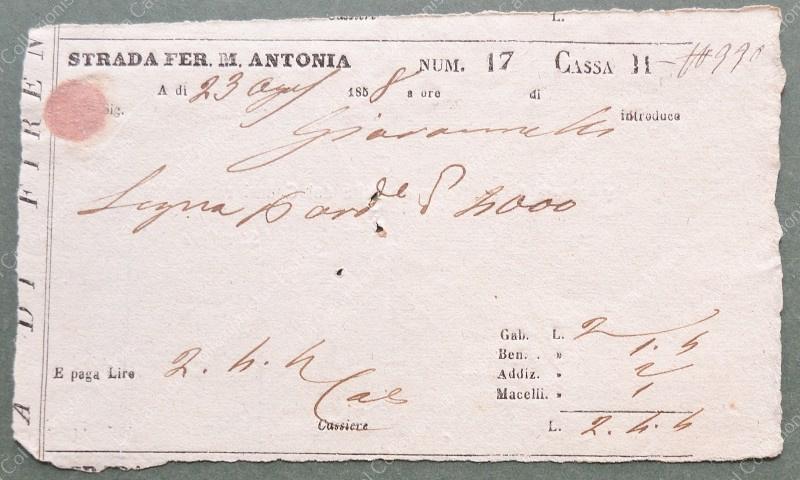 Cassiere L.
STRADA FER. M. ANTONIA NUM. 17 CASSA 11
A di 23 Ag 1858 a ore di
Sig. Giovannelli introduce
Legna p ard.e 4000
E paga Lire 2. 4. 4
Cassiere
Gab. L. 2
Ben. . » 1. 4
Addiz. » 2
Macelli. » 1
L. 2. 4. 4
A DI FIREN